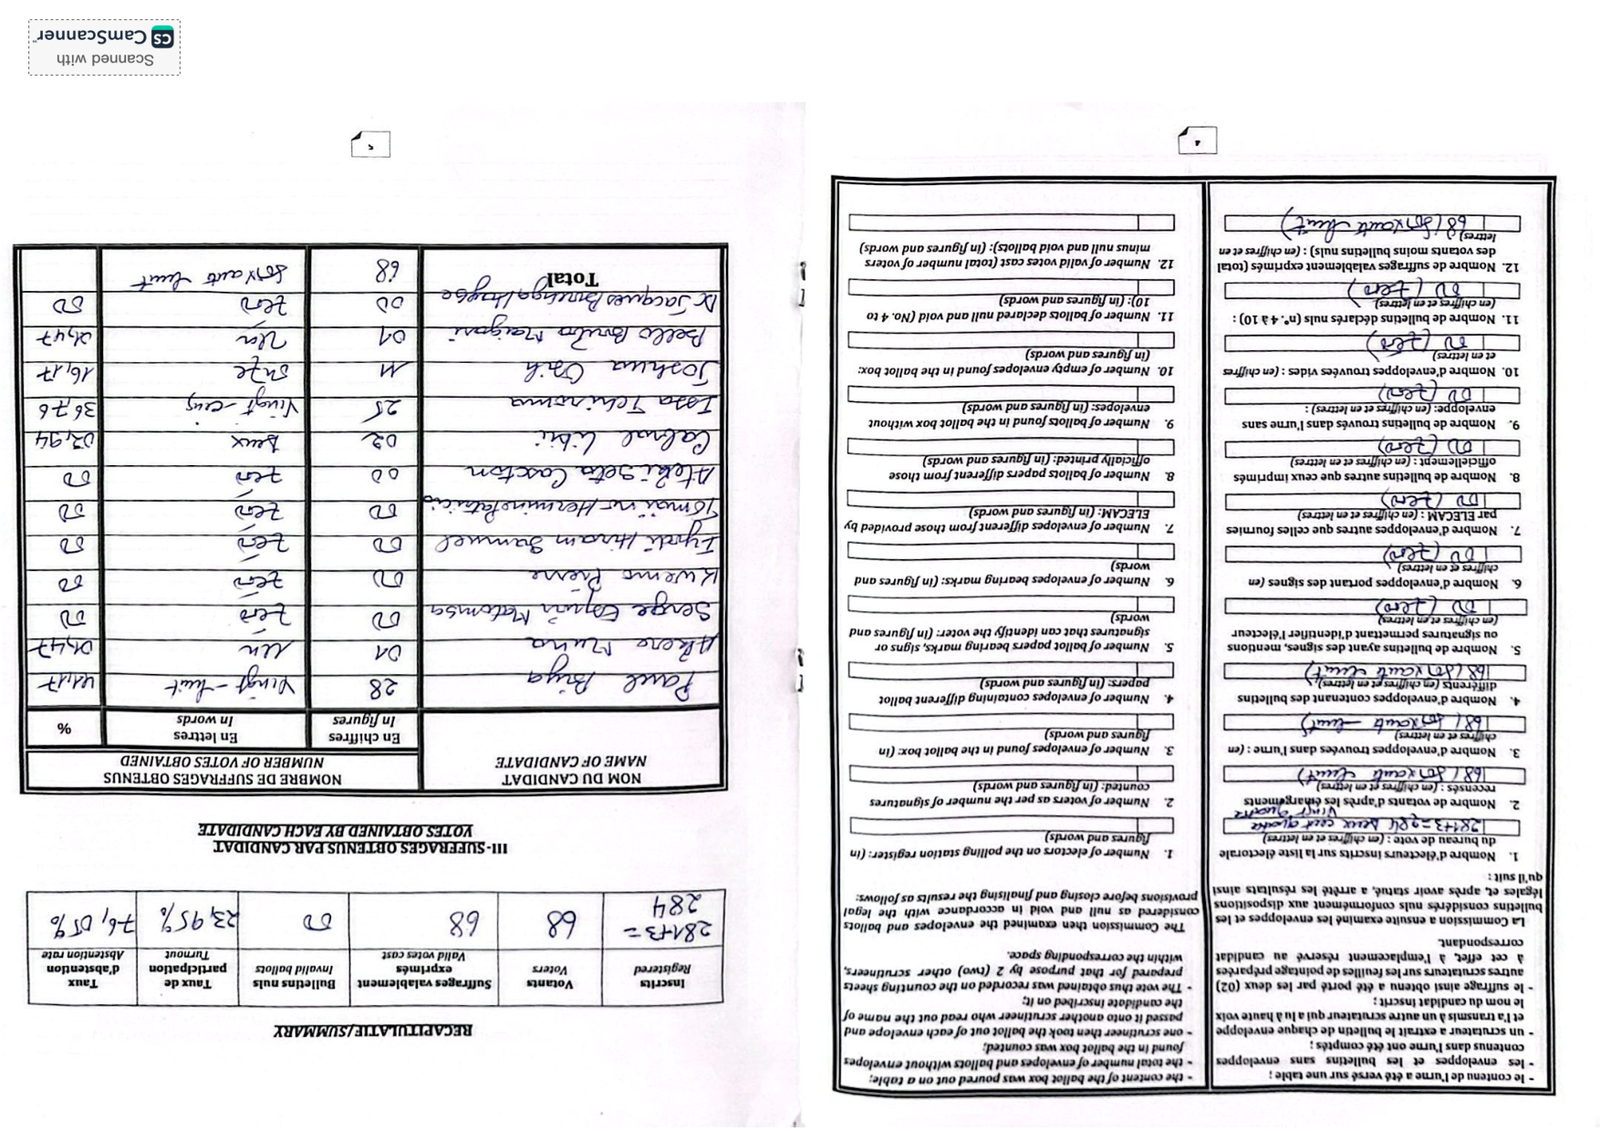 - le contenu de l'urne a été versé sur une table ;
- les enveloppes et les bulletins sans enveloppes contenus dans l'urne ont été comptés ;
- un scrutateur a extrait le bulletin de chaque enveloppe et l'a transmis à un autre scrutateur qui a lu à haute voix le nom du candidat inscrit ;
- le suffrage ainsi obtenu a été porté par les deux (02) autres scrutateurs sur les feuilles de pointage préparées à cet effet, à l'emplacement réservé au candidat correspondant.
La Commission a ensuite examiné les enveloppes et les bulletins considérés nuls conformément aux dispositions légales et, après avoir statué, a arrêté les résultats ainsi qu'il suit :
1. Nombre d'électeurs inscrits sur la liste électorale du bureau de vote : (en chiffres et en lettres)
281+3=284 deux cent quatre vingt quatre
2. Nombre de votants d'après les émargements recensés : (en chiffres et en lettres)
68 (soixante huit)
3. Nombre d'enveloppes trouvées dans l'urne : (en chiffres et en lettres)
68 (soixante-huit)
4. Nombre d'enveloppes contenant des bulletins différents (en chiffres et en lettres)
68 (soixante huit)
5. Nombre de bulletins ayant des signes, mentions ou signatures permettant d'identifier l'électeur (en chiffres et en lettres)
00 (zero)
6. Nombre d'enveloppes portant des signes (en chiffres et en lettres)
00 (zero)
7. Nombre d'enveloppes autres que celles fournies par ELECAM : (en chiffres et en lettres)
00 (zero)
8. Nombre de bulletins autres que ceux imprimés officiellement : (en chiffres et en lettres)
00 (zero)
9. Nombre de bulletins trouvés dans l'urne sans enveloppe: (en chiffres et en lettres) :
00 (zero)
10. Nombre d'enveloppes trouvées vides : (en chiffres et en lettres)
00 (zero)
11. Nombre de bulletins déclarés nuls (n°. 4 à 10) : (en chiffres et en lettres)
00 (zero)
12. Nombre de suffrages valablement exprimés (total des votants moins bulletins nuls) : (en chiffres et en lettres)
68 (soixante huit)
- the content of the ballot box was poured out on a table;
- the total number of envelopes and ballots without envelopes found in the ballot box was counted;
- one scrutineer then took the ballot out of each envelope and passed it onto another scrutineer who read out the name of the candidate inscribed on it;
- The vote thus obtained was recorded on the counting sheets prepared for that purpose by 2 (two) other scrutineers, within the corresponding space.
The Commission then examined the envelopes and ballots considered as null and void in accordance with the legal provisions before closing and finalising the results as follows:
1. Number of electors on the polling station register: (in figures and words)
2. Number of voters as per the number of signatures counted: (in figures and words)
3. Number of envelopes found in the ballot box: (in figures and words)
4. Number of envelopes containing different ballot papers: (in figures and words)
5. Number of ballot papers bearing marks, signs or signatures that can identify the voter: (in figures and words
6. Number of envelopes bearing marks: (in figures and words)
7. Number of envelopes different from those provided by ELECAM: (in figures and words)
8. Number of ballots papers different from those officially printed: (in figures and words)
9. Number of ballots found in the ballot box without envelopes: (in figures and words)
10. Number of empty envelopes found in the ballot box: (in figures and words)
11. Number of ballots declared null and void (No. 4 to 10): (in figures and words)
12. Number of valid votes cast (total number of voters minus null and void ballots): (in figures and words)
4
RECAPITULATIF/SUMMARY
Inscrits Registered | Votants Voters | Suffrages valablement exprimés Valid votes cast | Bulletins nuls Invalid ballots | Taux de participation Turnout | Taux d'abstention Abstention rate
281+3=284 | 68 | 68 | 00 | 23,95% | 76,05%
III- SUFFRAGES OBTENUS PAR CANDIDAT
VOTES OBTAINED BY EACH CANDIDATE
NOM DU CANDIDAT NAME OF CANDIDATE | NOMBRE DE SUFFRAGES OBTENUS NUMBER OF VOTES OBTAINED
En chiffres In figures | En lettres In words | %
Paul Biya | 28 | Vingt-huit | 41,17
Akere Muna | 01 | Un | 01,47
Serge Espoir Matomba | 00 | zero | 00
Kwemo Pierre | 00 | zero | 00
Iyodi Hiram Samuel | 00 | zero | 00
Tomaino Hermine Patricia | 00 | zero | 00
Ateki Seta Caxton | 00 | zero | 00
Cabral Libii | 02 | deux | 02,94
Issa Tchiroma | 25 | Vingt-cinq | 36,76
Joshua Osih | 11 | onze | 16,17
Bello Bouba Maigari | 01 | Un | 01,47
Dr Jacques Bouhga Hagbe | 00 | zero | 00
Total | 68 | soixante huit
5
Scanned with
CS CamScanner